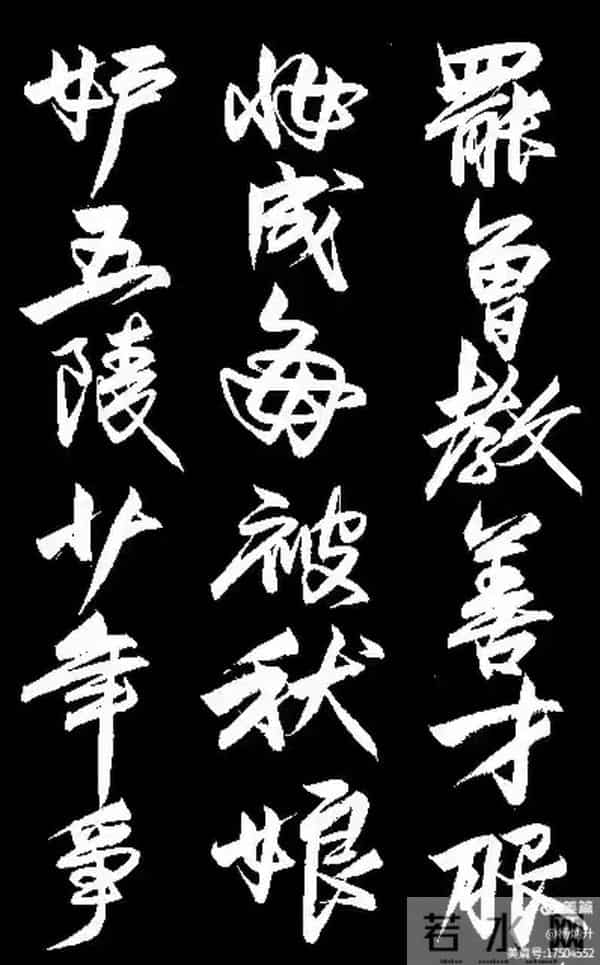 罷曾教善才服
妝成每被秋娘
妒五陵少年爭
美篇
若水网
美篇号:17504552